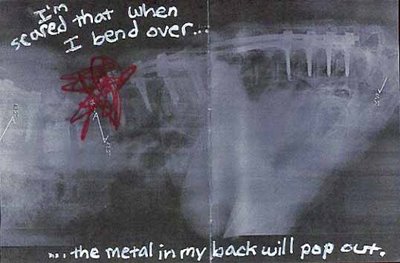 I'm
scared that when
I bend over...
A
... the metal in my back will pop out.